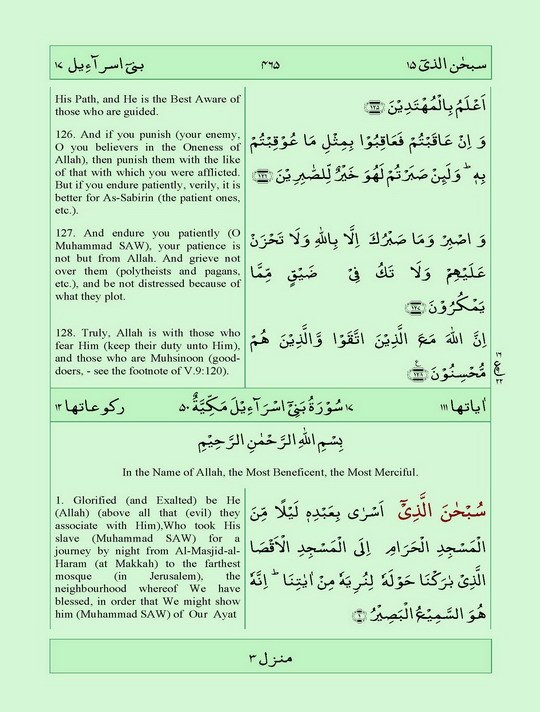 سبحٰن الذیٓ ۱۵
۴۶۵
بنیٓ اسرآءیل ۱۷
اَعْلَمُ بِالْمُهْتَدِیْنَ ۝۱۲۵
وَ اِنْ عَاقَبْتُمْ فَعَاقِبُوْا بِمِثْلِ مَا عُوْقِبْتُمْ
بِهٖ ؕ وَلَىِٕنْ صَبَرْتُمْ لَهُوَ خَیْرٌ لِّلصّٰبِرِیْنَ ۝۱۲۶
وَ اصْبِرْ وَمَا صَبْرُكَ اِلَّا بِاللّٰهِ وَلَا تَحْزَنْ
عَلَیْهِمْ وَلَا تَكُ فِیْ ضَیْقٍ مِّمَّا
یَمْكُرُوْنَ ۝۱۲۷
اِنَّ اللّٰهَ مَعَ الَّذِیْنَ اتَّقَوْا وَّالَّذِیْنَ هُمْ
مُّحْسِنُوْنَ ۝۱۲۸
۱۶
ع
۲۲
His Path, and He is the Best Aware of
those who are guided.
126. And if you punish (your enemy,
O you believers in the Oneness of
Allah), then punish them with the like
of that with which you were afflicted.
But if you endure patiently, verily, it is
better for As-Sabirin (the patient ones,
etc.).
127. And endure you patiently (O
Muhammad SAW), your patience is
not but from Allah. And grieve not
over them (polytheists and pagans,
etc.), and be not distressed because of
what they plot.
128. Truly, Allah is with those who
fear Him (keep their duty unto Him),
and those who are Muhsinoon (good-
doers, - see the footnote of V.9:120).
اٰیاتها ۱۱۱
۱۷ سُوْرَةُ بَنِیْٓ اِسْرَآءِیْلَ مَكِّیَّةٌ ۵۰
ركوعاتها ۱۲
بِسْمِ اللّٰهِ الرَّحْمٰنِ الرَّحِیْمِ
In the Name of Allah, the Most Beneficent, the Most Merciful.
سُبْحٰنَ الَّذِیْٓ اَسْرٰی بِعَبْدِهٖ لَیْلًا مِّنَ
الْمَسْجِدِ الْحَرَامِ اِلَی الْمَسْجِدِ الْاَقْصَا
الَّذِیْ بٰرَكْنَا حَوْلَهٗ لِنُرِیَهٗ مِنْ اٰیٰتِنَا ؕ اِنَّهٗ
هُوَ السَّمِیْعُ الْبَصِیْرُ ۝۱
1. Glorified (and Exalted) be He
(Allah) (above all that (evil) they
associate with Him),Who took His
slave (Muhammad SAW) for a
journey by night from Al-Masjid-al-
Haram (at Makkah) to the farthest
mosque (in Jerusalem), the
neighbourhood whereof We have
blessed, in order that We might show
him (Muhammad SAW) of Our Ayat
منزل ۳